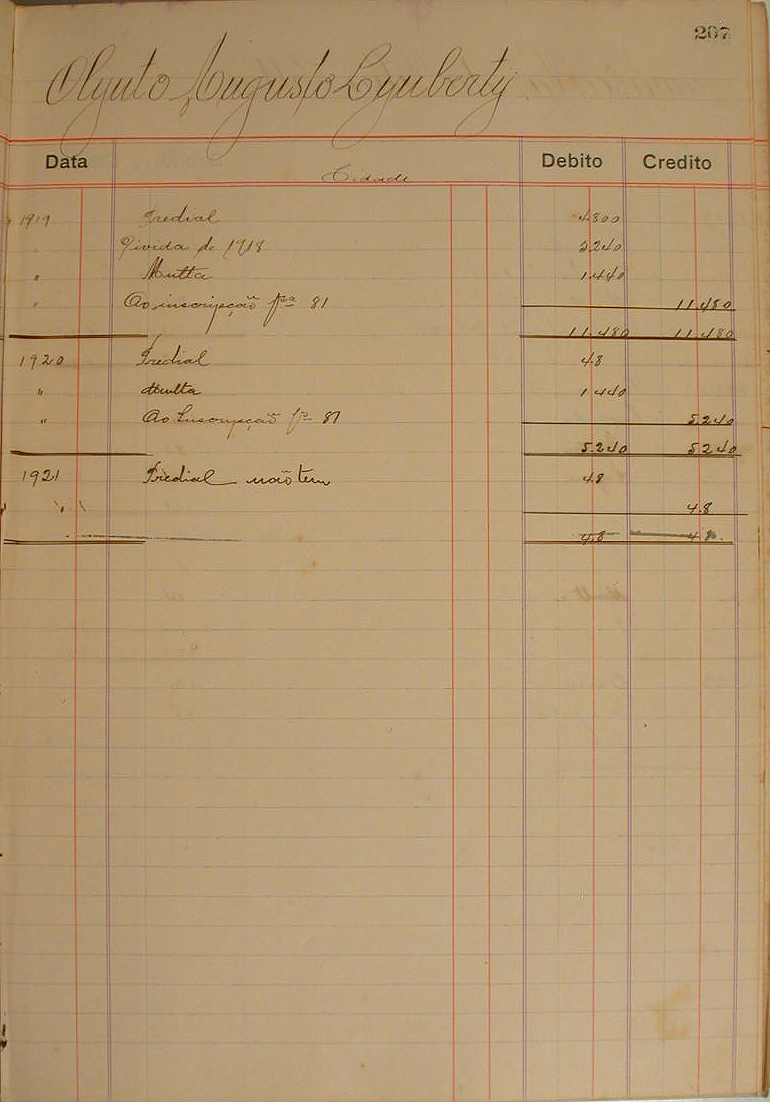 267
Olynto Augusto Cyuberty
Data Cidade Debito Credito
1919 Predial 4.800
" Divida de 1918 5.240
" Multa 1.440
" Ao inscripção fra 81 11.480
11.480 11.480
1920 Predial 4.8
" Multa 1.440
" Ao Inscripção fr 81 5.240
5.240 5.240
1921 Predial não tem 4.8
4.8
4.8 4.8